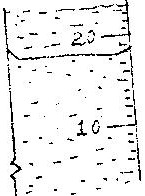 20
10